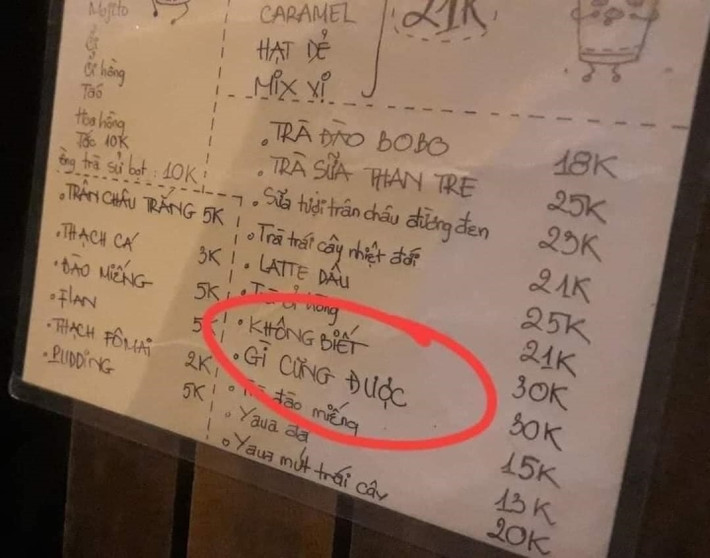 Mojito
Ổi
Ổi hồng
Táo
Hoa hồng
Táo 10K
ống trà sủi bọt : 10K
• TRÂN CHÂU TRẮNG 5K
• THẠCH CÁ 3K
• ĐÀO MIẾNG 5K
• FLAN 5K
• THẠCH FÔMAI 2K
• PUDDING 5K
CARAMEL
HẠT DẺ
MIX VỊ
21K
• TRÀ ĐÀO BOBO 18K
• TRÀ SỮA THAN TRE 25K
• Sữa tươi trân châu đường đen 23K
• Trà trái cây nhiệt đới 21K
• LATTE DÂU 25K
• Trà ổi hồng 21K
• KHÔNG BIẾT 30K
• GÌ CŨNG ĐƯỢC 30K
• Trà đào miếng 15K
• Yaua đá 13K
• Yaua mứt trái cây 20K